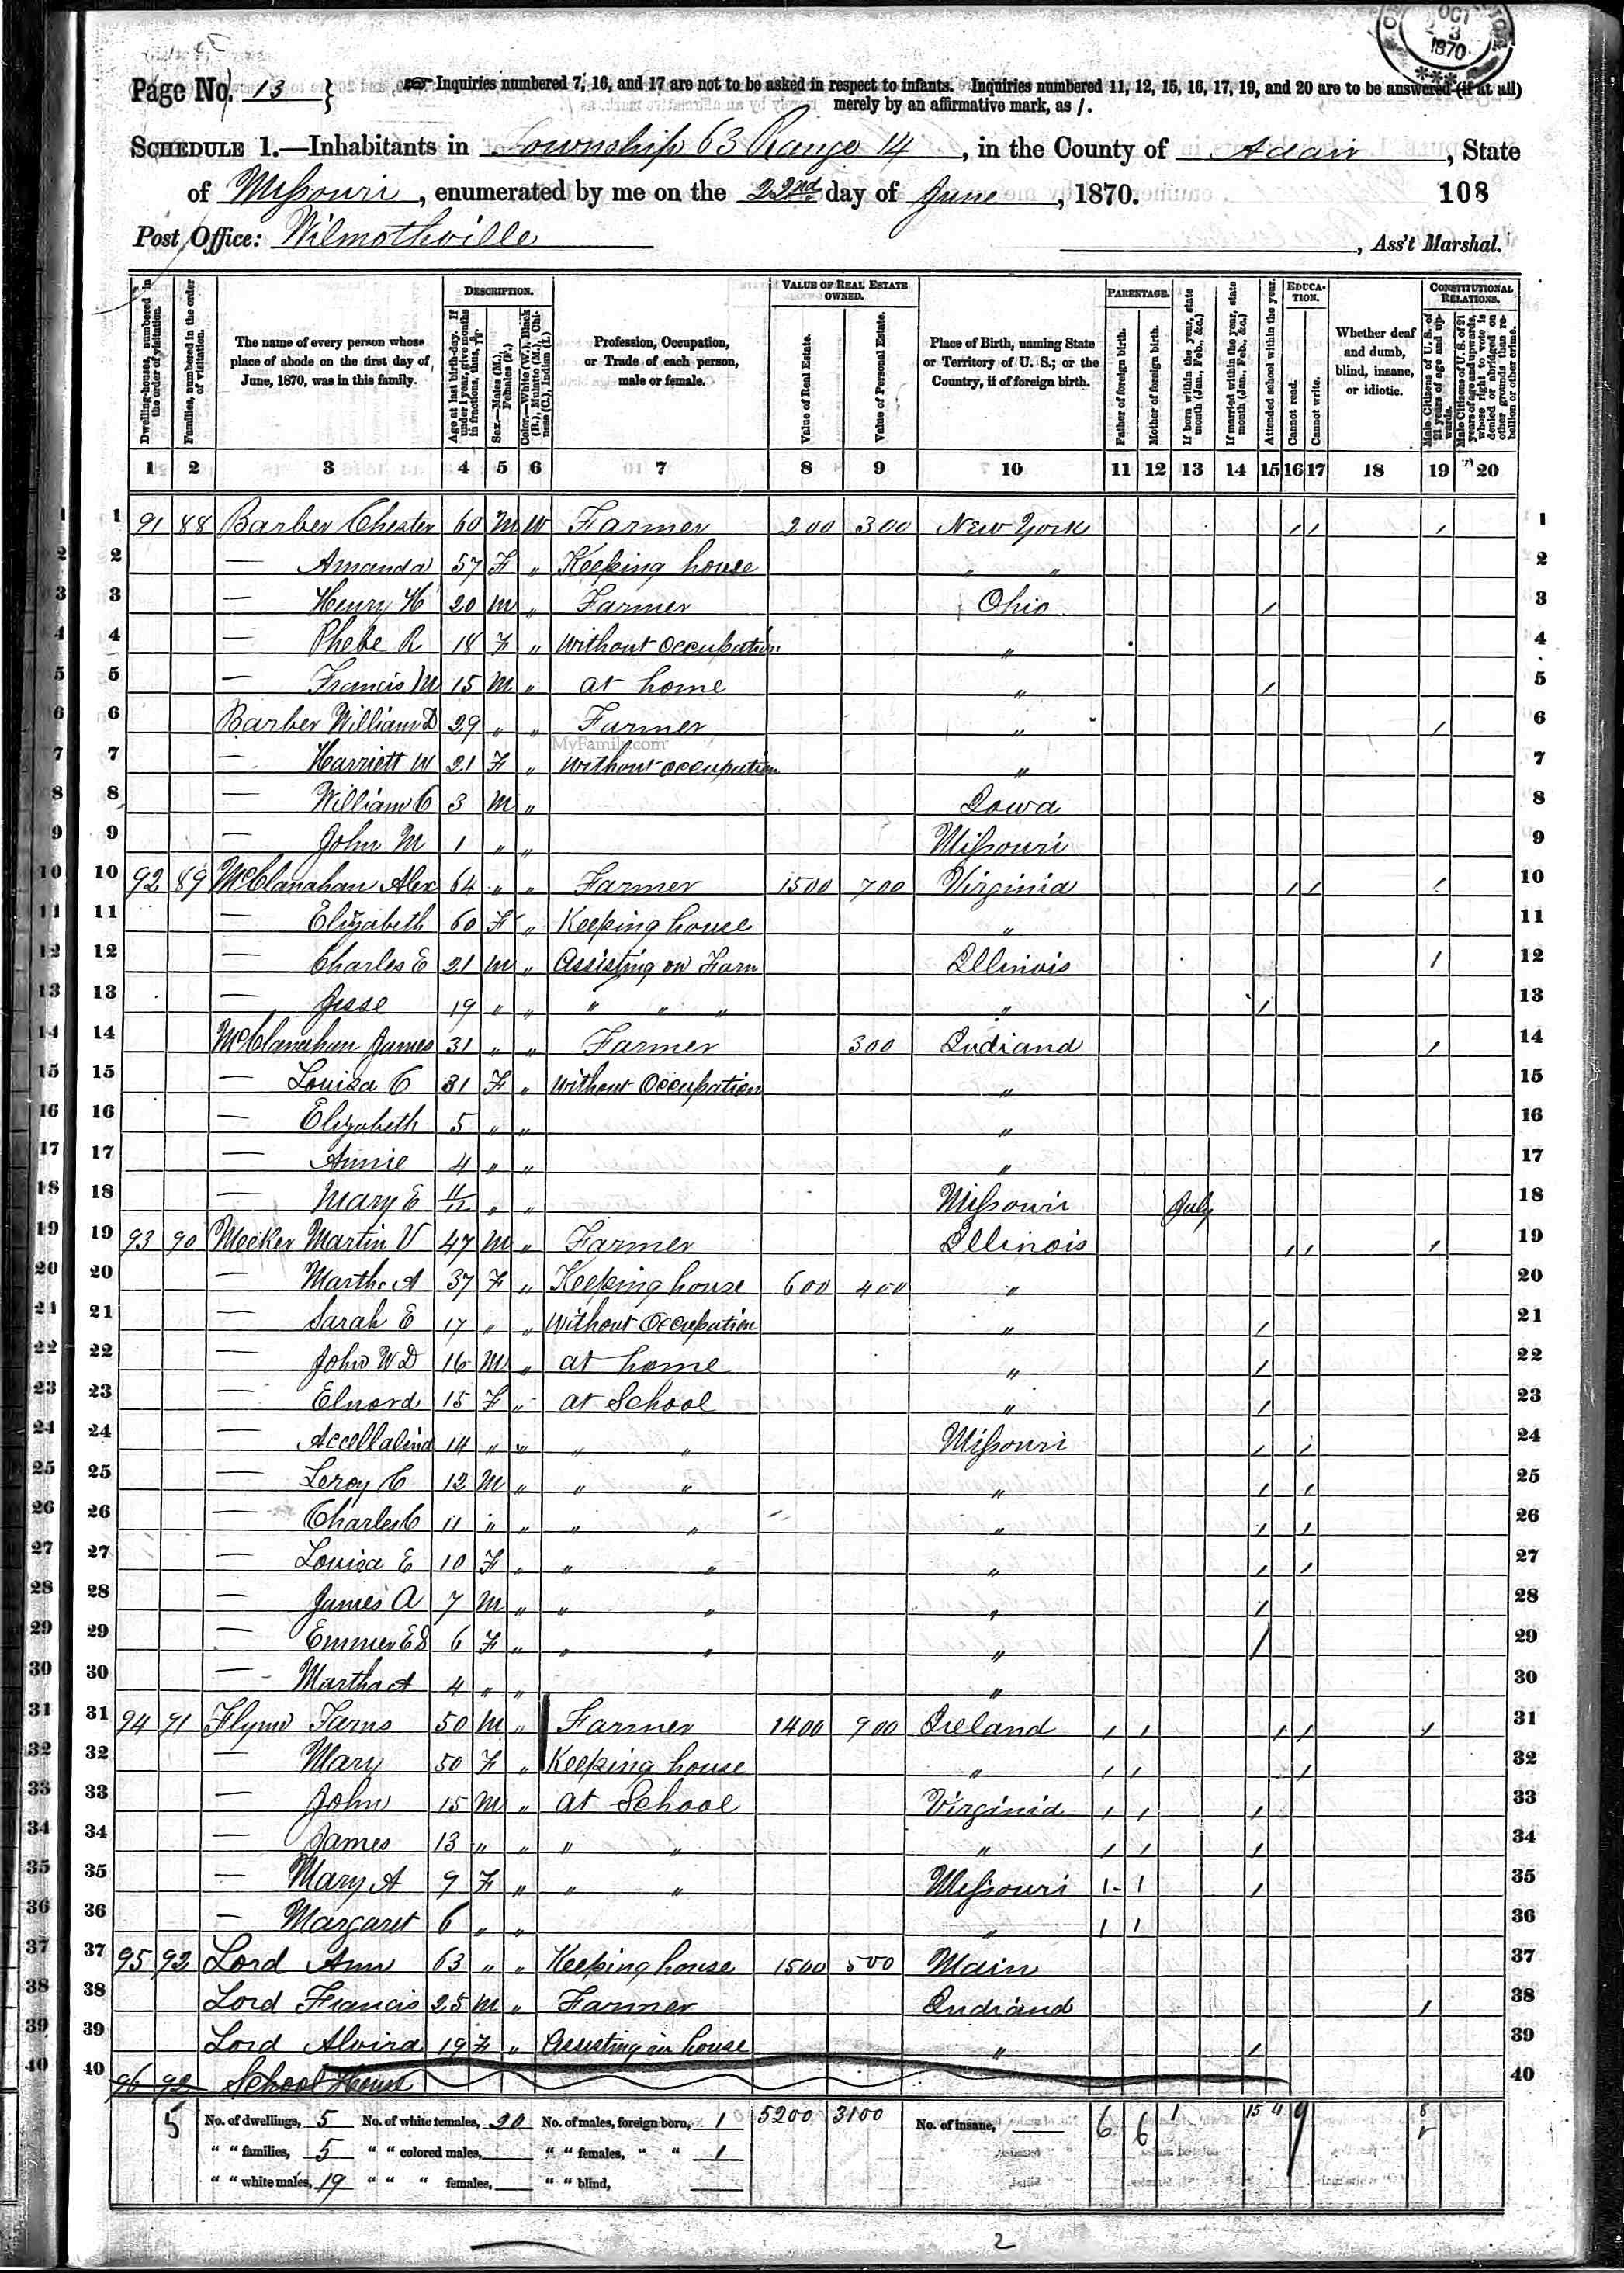 OCT 3 1870
Page No. 13 } ☞ Inquiries numbered 7, 16, and 17 are not to be asked in respect to infants. Inquiries numbered 11, 12, 15, 16, 17, 19, and 20 are to be answered (if at all)
merely by an affirmative mark, as /.
SCHEDULE 1.—Inhabitants in Township 63 Range 14, in the County of Adair, State
of Missouri, enumerated by me on the 22nd day of June, 1870. 108
Post Office: Wilmothville , Ass't Marshal.
DESCRIPTION. VALUE OF REAL ESTATE OWNED. PARENTAGE. EDUCATION. CONSTITUTIONAL RELATIONS.
Dwelling-houses, numbered in the order of visitation.
Families, numbered in the order of visitation.
The name of every person whose place of abode on the first day of June, 1870, was in this family.
Age at last birth-day. If under 1 year, give months in fractions, thus, 3/12
Sex.—Males (M.), Females (F.)
Color.—White (W.), Black (B.), Mulatto (M.), Chinese (C.), Indian (I.)
Profession, Occupation, or Trade of each person, male or female.
Value of Real Estate.
Value of Personal Estate.
Place of Birth, naming State or Territory of U. S.; or the Country, if of foreign birth.
Father of foreign birth.
Mother of foreign birth.
If born within the year, state month (Jan., Feb., &c.)
If married within the year, state month (Jan., Feb., &c.)
Attended school within the year.
Cannot read.
Cannot write.
Whether deaf and dumb, blind, insane, or idiotic.
Male Citizens of U. S. of 21 years of age and upwards.
Male Citizens of U. S. of 21 years of age and upwards, whose right to vote is denied or abridged on other grounds than rebellion or other crime.
1 2 3 4 5 6 7 8 9 10 11 12 13 14 15 16 17 18 19 20
1 91 88 Barber Chester 60 M W Farmer 200 300 New York / / / 1
2 — Amanda 57 F " Keeping house " " 2
3 — Henry H 20 M " Farmer Ohio / 3
4 — Phebe R 18 F " Without Occupation " 4
5 — Francis M 15 M " at home " / 5
6 Barber William D 29 " " Farmer " / 6
MyFamily.com
7 — Harriett W 21 F " Without occupation " 7
8 — William C 3 M " Iowa 8
9 — John M 1 " " Missouri 9
10 92 89 McClanahan Alex 64 " " Farmer 1500 700 Virginia / / / 10
11 — Elizabeth 60 F " Keeping house " 11
12 — Charles E 21 M " Assisting on Farm Illinois / 12
13 — Jesse 19 " " " " " " / 13
14 McClanahan James 31 " " Farmer 300 Indiana / 14
15 — Louisa C 31 F " Without Occupation " 15
16 — Elizabeth 5 " " " 16
17 — Annie 4 " " " 17
18 — Mary E 11/12 " " Missouri July 18
19 93 90 Meeker Martin V 47 M " Farmer Illinois / / / 19
20 — Martha A 37 F " Keeping house 600 400 " 20
21 — Sarah E 17 " " Without Occupation " / 21
22 — John W D 16 M " at home " / 22
23 — Elnora 15 F " at School " / 23
24 — Accellalind 14 " " " " Missouri / / 24
25 — Leroy C 12 M " " " " / / 25
26 — Charles C 11 " " " " " / / 26
27 — Louisa E 10 F " " " " / / 27
28 — James A 7 M " " " " / 28
29 — Emmer E S 6 F " " " " / 29
30 — Martha A 4 " " " 30
31 94 91 Flynn Jams 50 M " Farmer 1400 900 Ireland / / / / / 31
32 — Mary 50 F " Keeping house " / / / 32
33 — John 15 M " at School Virginia / / / 33
34 — James 13 " " " " " / / / 34
35 — Mary A 9 F " " " Missouri / / / 35
36 — Margaret 6 " " " / / 36
37 95 92 Lord Ann 63 " " Keeping house 1500 500 Main 37
38 Lord Francis 25 M " Farmer Indiana / 38
39 Lord Alvira 19 F " Assisting in house " / 39
40 96 92 School House 40
5 No. of dwellings, 5 No. of white females, 20 No. of males, foreign born, 1 5200 3100 No. of insane, 6 6 1 15 4 9 8
" " families, 5 " " colored males, " " females, " " 1
" " white males, 19 " " " females, " " blind,
2